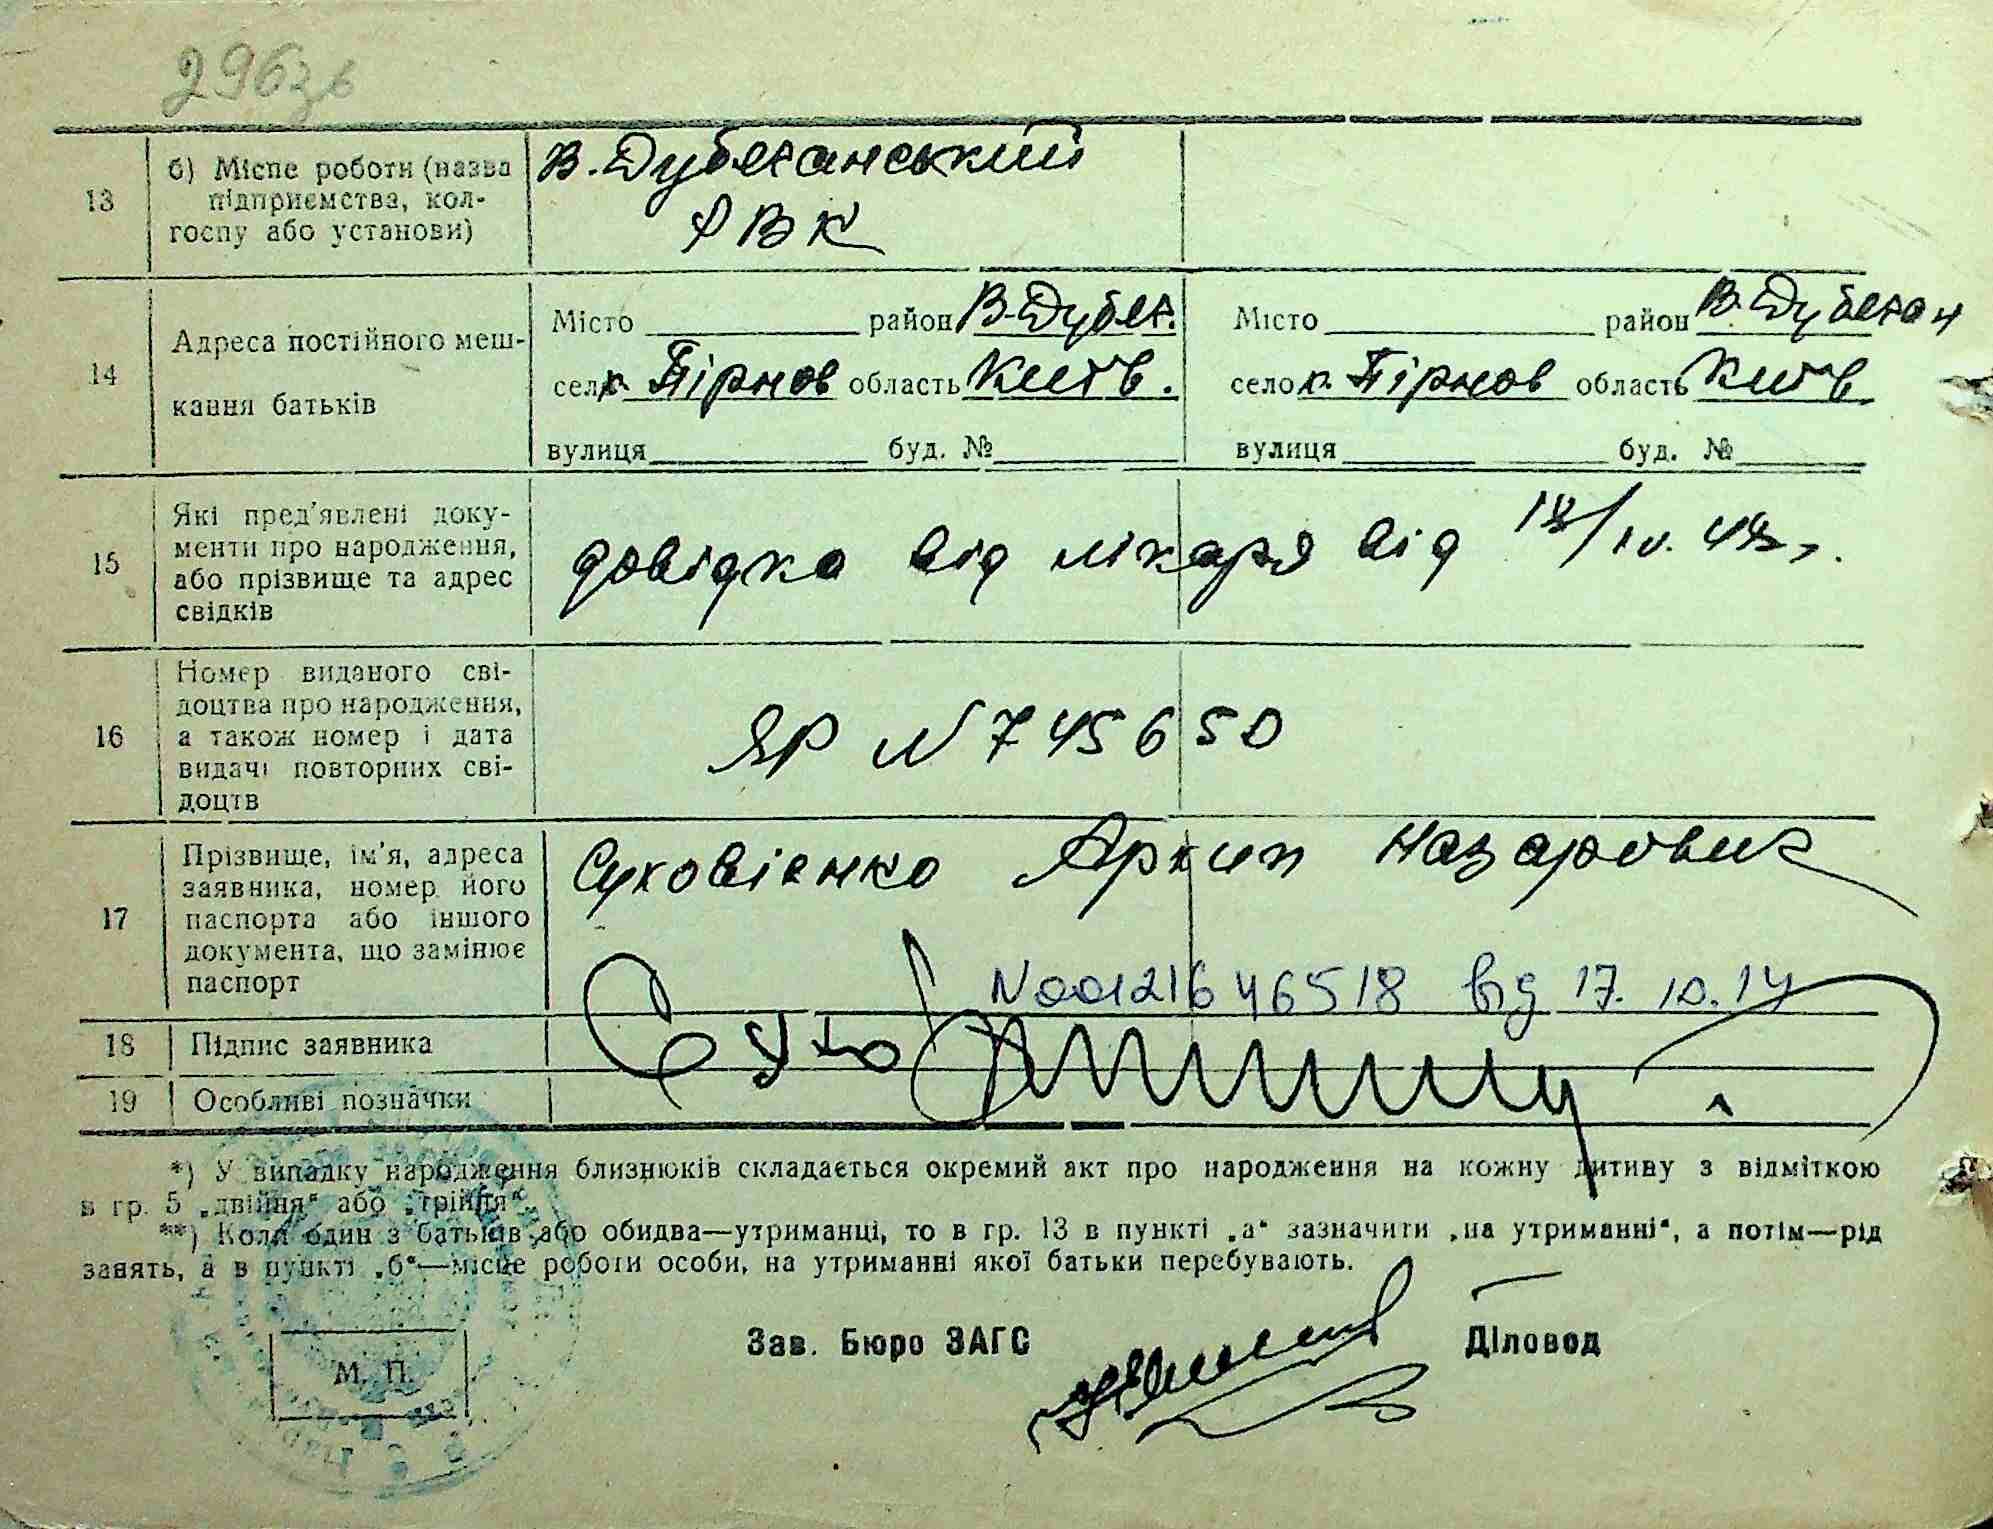 296зв
13
б) Місце роботи (назва
підприємства, кол-
госпу або установи)
В. Дубечанський
РВК
14
Адреса постійного меш-
кання батьків
Місто район В-Дубеч.
село с. Пірнов область Київ.
вулиця буд. №
Місто район В. Дубечан
село с. Пірнов область Київ
вулиця буд. №
15
Які пред'явлені доку-
менти про народження,
або прізвище та адрес
свідків
довідка від лікаря від
16
Номер виданого сві-
доцтва про народження,
а також номер і дата
видачі повторних сві-
доцтв
ЯР N 745650
17
Прізвище, ім'я, адреса
заявника, номер його
паспорта або іншого
документа, що замінює
паспорт
Суховієнко Архип Назарович
N00121646518 від 17.10.14
18
Підпис заявника
19
Особливі позначки
*) У випадку народження близнюків складається окремий акт про народження на кожну дитину з відміткою
в гр. 5 „двійня“ або „трійня“.
**) Коли один з батьків або обидва—утриманці, то в гр. 13 в пункті „а“ зазначити „на утриманні“, а потім—рід
занять, а в пункті „б“—місце роботи особи, на утриманні якої батьки перебувають.
Зав. Бюро ЗАГС
Діловод
М. П.